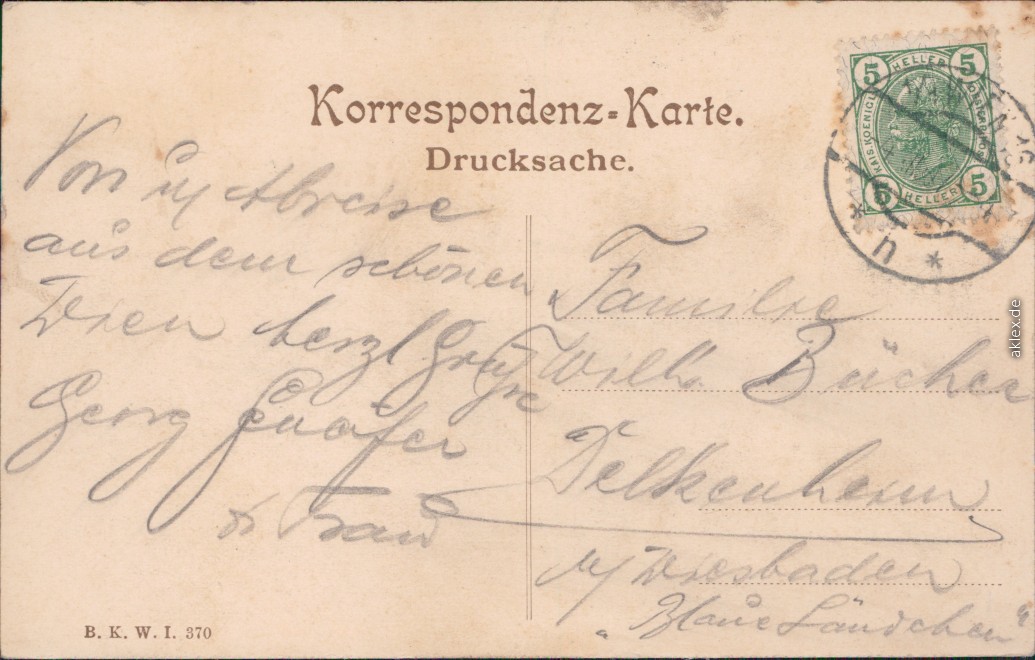 Korrespondenz-Karte.
Drucksache.
5 HELLER 5
KAIS. KOENIGL.
5 HELLER 5
n *
Von Abreise
aus dem schönen
Wien herzl Grüße
Georg
& Frau
Familie
Wilh. Bücher
Delkenheim
b/ Wiesbaden
„Blaue Ländchen"
B. K. W. I. 370
aklex.de